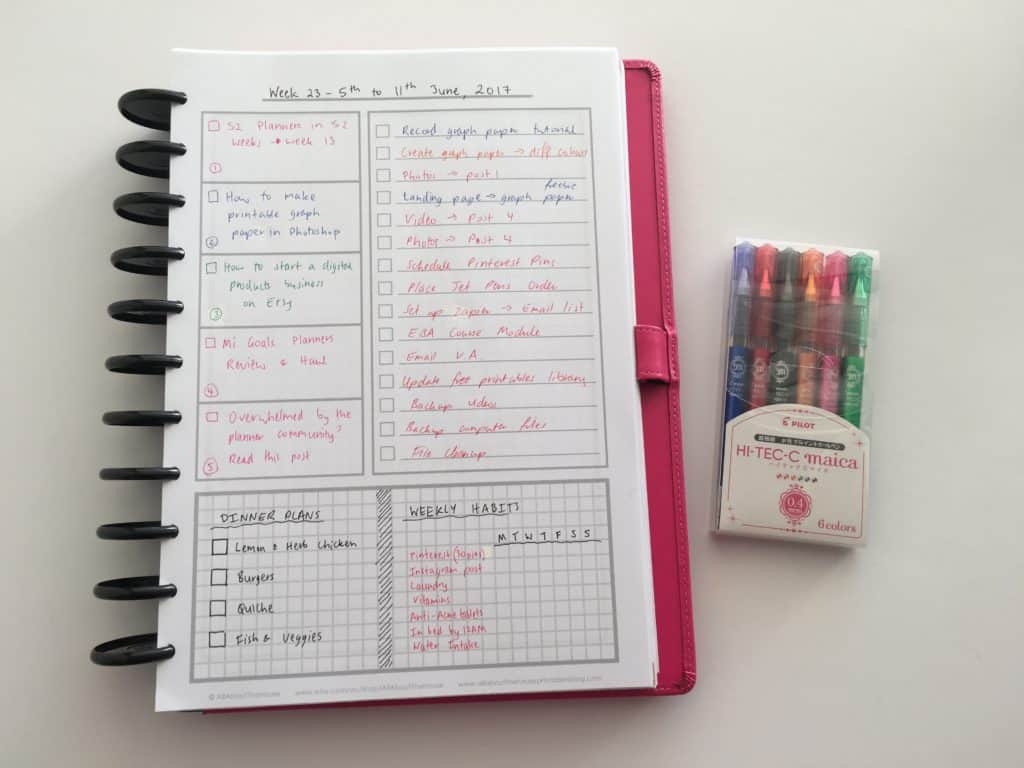 Week 23 - 5th to 11th June, 2017
52 Planners in 52
weeks → week 13
1
How to make
printable graph
paper in Photoshop
2
How to start a digital
products business
on Etsy
3
Mi Goals Planners
Review & Haul
4
Overwhelmed by the
planner community?
Read this post
5
Record graph paper tutorial
Create graph paper → diff colours
Photos → post 1
freebie
Landing page → graph paper
Video → Post 4
Photos → Post 4
Schedule Pinterest Pins
Place Jet Pens Order
Set up Zapier → Email list
EBA Course Module
Email V.A.
Update free printables library
Backup videos
Backup computer files
File cleanup
DINNER PLANS
Lemon & Herb Chicken
Burgers
Quiche
Fish & Veggies
WEEKLY HABITS
M T W T F S S
Pinterest (30 pins)
Instagram post
Laundry
Vitamins
Anti-Acne tablets
In bed by 12AM
Water Intake
© AllAboutTheHouse
PILOT
HI-TEC-C maica
ハイテックCマイカ
0.4
6 colors